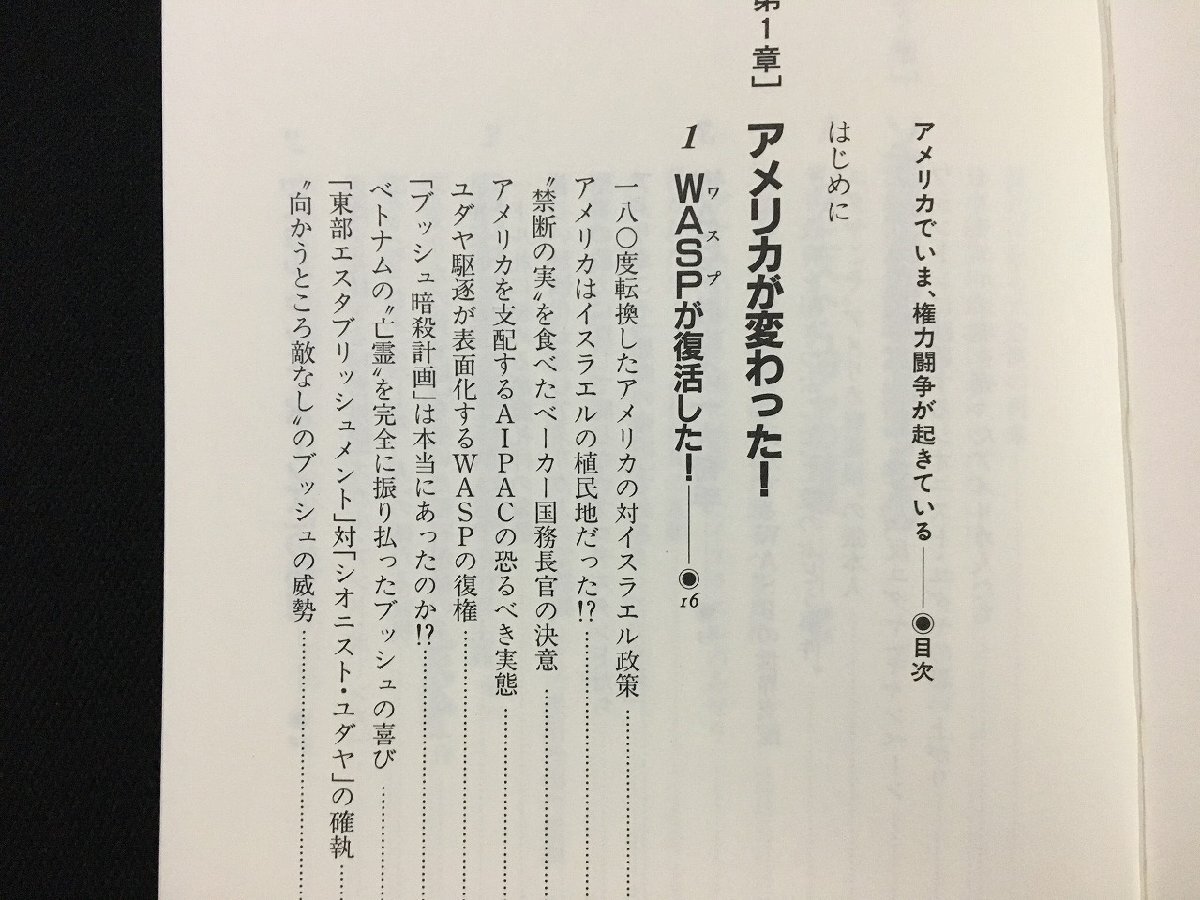 アメリカでいま、権力闘争が起きている——◉目次
はじめに
第1章］ アメリカが変わった！
1 WASPが復活した！——◉16
ワスプ
一八〇度転換したアメリカの対イスラエル政策……………
アメリカはイスラエルの植民地だった!?……………
〝禁断の実〟を食べたベーカー国務長官の決意……………
アメリカを支配するAIPACの恐るべき実態……………
ユダヤ駆逐が表面化するWASPの復権……………
「ブッシュ暗殺計画」は本当にあったのか!?……………
ベトナムの〝亡霊〟を完全に振り払ったブッシュの喜び……………
「東部エスタブリッシュメント」対「シオニスト・ユダヤ」の確執……
〝向かうところ敵なし〟のブッシュの威勢……………